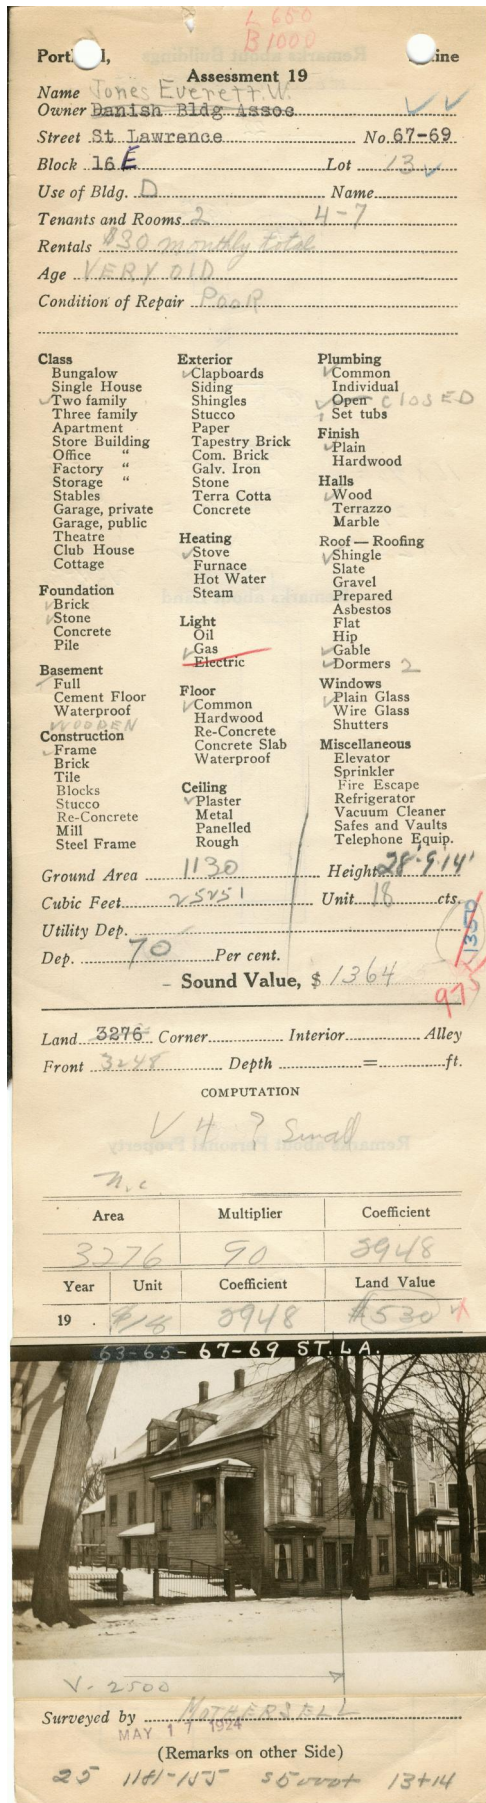 L 650
B 1000
Portl d, ine
Assessment 19
Name Jones Everett. W.
Owner Danish Bldg Assoc
Street St Lawrence No. 67-69
Block 16 E Lot 13
Use of Bldg. D Name
Tenants and Rooms 2 4-7
Rentals $30 monthly total
Age VERY OLD
Condition of Repair POOR
Class
Bungalow
Single House
Two family
Three family
Apartment
Store Building
Office "
Factory "
Storage "
Stables
Garage, private
Garage, public
Theatre
Club House
Cottage
Foundation
Brick
Stone
Concrete
Pile
Basement
Full
Cement Floor
Waterproof
WOODEN
Construction
Frame
Brick
Tile
Blocks
Stucco
Re-Concrete
Mill
Steel Frame
Exterior
Clapboards
Siding
Shingles
Stucco
Paper
Tapestry Brick
Com. Brick
Galv. Iron
Stone
Terra Cotta
Concrete
Heating
Stove
Furnace
Hot Water
Steam
Light
Oil
Gas
Electric
Floor
Common
Hardwood
Re-Concrete
Concrete Slab
Waterproof
Ceiling
Plaster
Metal
Panelled
Rough
Plumbing
Common
Individual
Open CLOSED
Set tubs
Finish
Plain
Hardwood
Halls
Wood
Terrazzo
Marble
Roof — Roofing
Shingle
Slate
Gravel
Prepared
Asbestos
Flat
Hip
Gable
Dormers 2
Windows
Plain Glass
Wire Glass
Shutters
Miscellaneous
Elevator
Sprinkler
Fire Escape
Refrigerator
Vacuum Cleaner
Safes and Vaults
Telephone Equip.
Ground Area 1130 Height 28'-9'-14'
Cubic Feet 25251 Unit 18 cts.
Utility Dep.
1350
Dep. 70 Per cent.
975
Sound Value, $ 1364
Land 3276 Corner Interior Alley
Front 3248 Depth = ft.
COMPUTATION
V 4 ? Small
n.c.
Area Multiplier Coefficient
3276 90 2948
Year Unit Coefficient Land Value
19 . 9/18 2948 $530
63-65-67-69 ST. LA.
V-2500
Surveyed by MOTHERSELL
MAY 17 1924
(Remarks on other Side)
25 1181-155 13+14